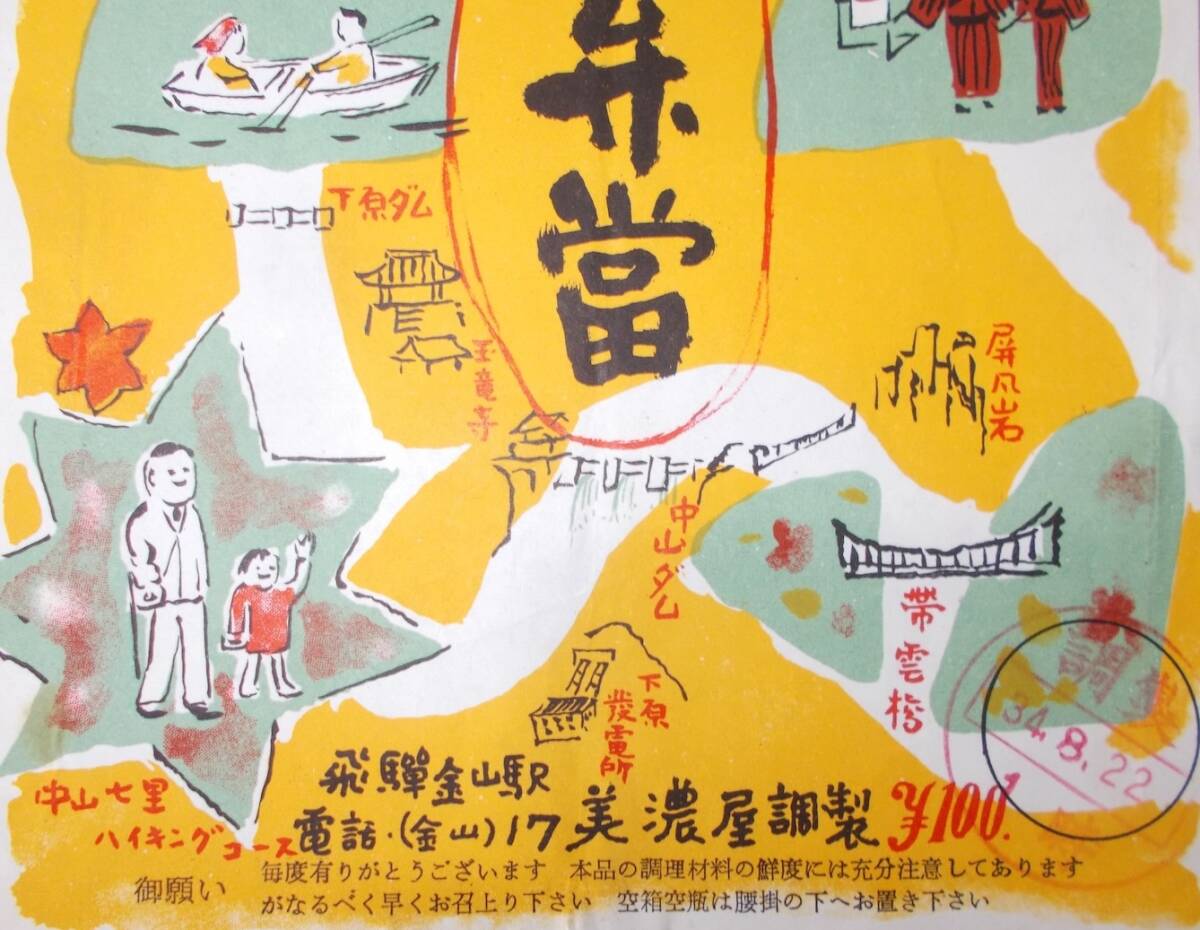 弁當
下原ダム
玉竜寺
屏風岩
中山ダム
帯雲橋
下原
發電所
調製
34.8.22
中山七里
ハイキングコース
飛驒金山駅
電話・(金山)17 美濃屋調製 ¥100.
御願い
毎度有りがとうございます 本品の調理材料の鮮度には充分注意してあります
がなるべく早くお召上り下さい 空箱空瓶は腰掛の下へお置き下さい